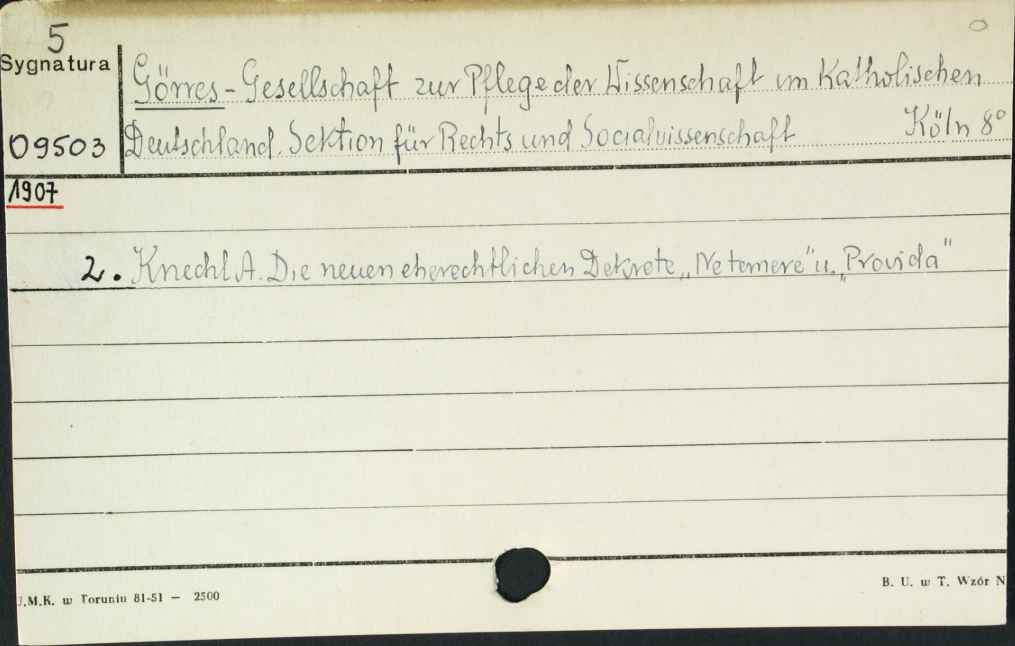 5
Sygnatura
Görres-Gesellschaft zur Pflege der Wissenschaft im Katholischen
09503 Deutschland. Sektion für Rechts und Socialwissenschaft Köln 8°
1907
2. Knecht A. Die neuen eherechtlichen Dekrete „Ne temere" u. „Provida"
U.M.K. w Toruniu 81-51 — 2500
B. U. w T. Wzór N